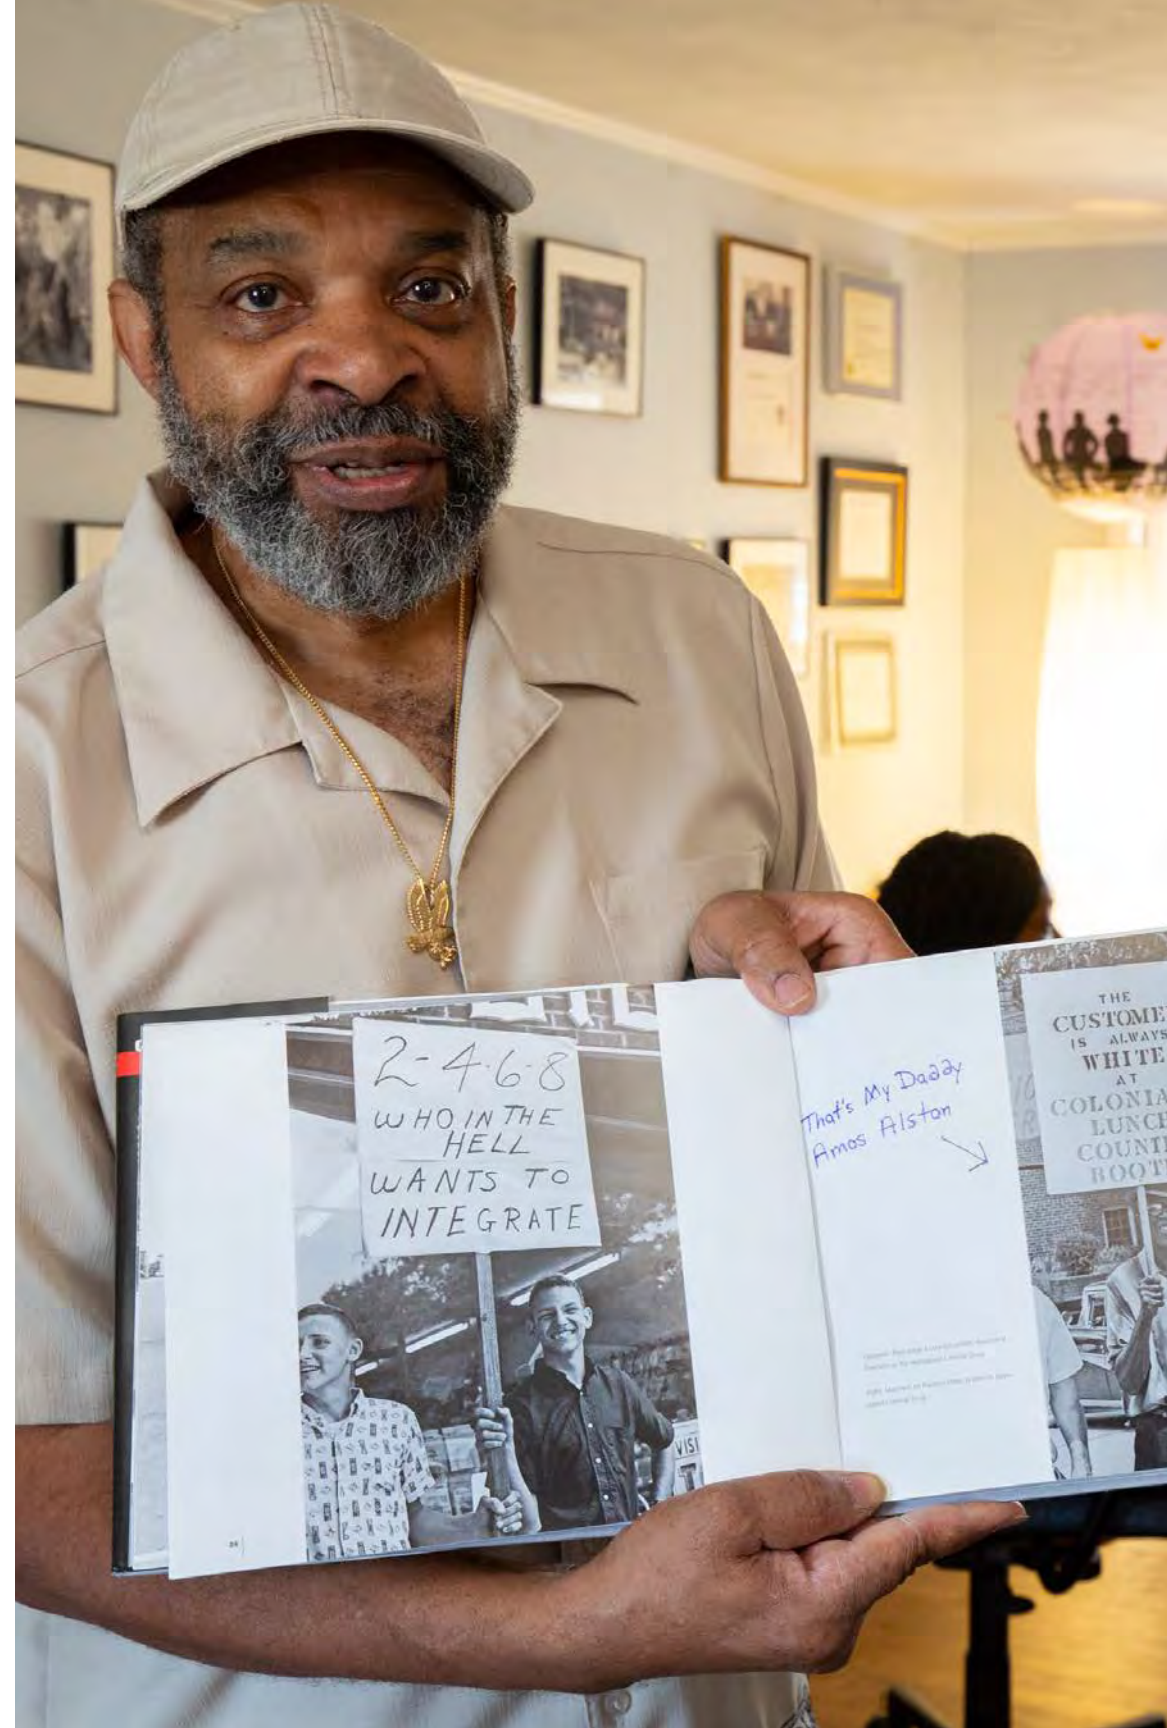 2-4-6-8
WHO IN THE
HELL
WANTS TO
INTEGRATE
VISI
That's My Daddy
Amos Alston
THE
CUSTOME
IS ALWAYS
WHITE
AT
COLONIA
LUNCH
COUNTE
BOOT